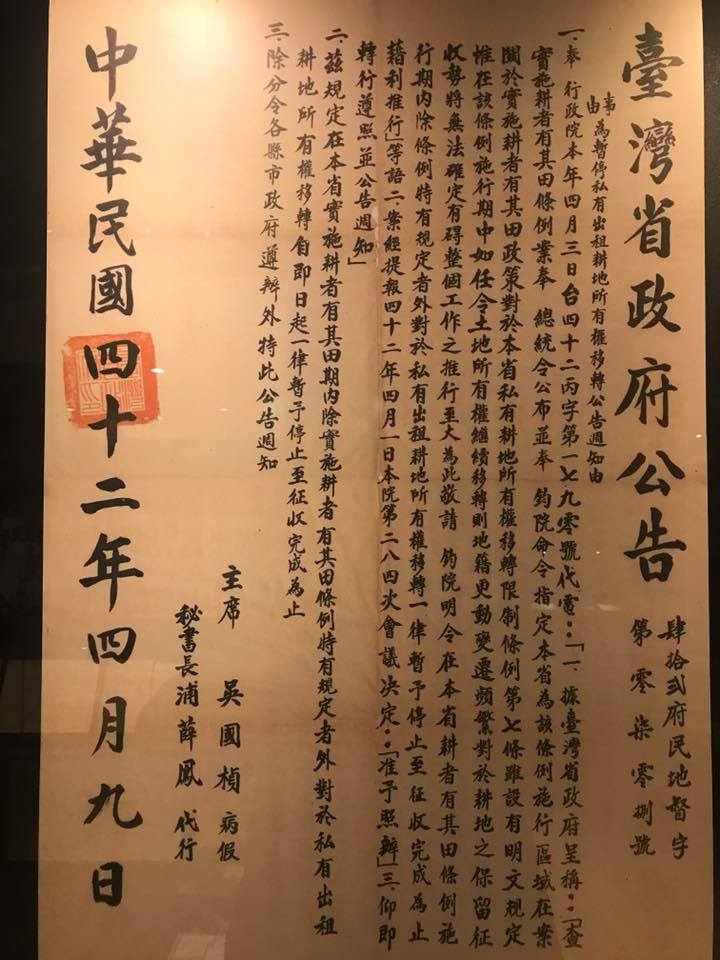 臺灣省政府公告
肆拾貳府民地督字
第零柒零捌號
事由 為暫停私有出租耕地所有權移轉公告週知由
一、奉 行政院本年四月三日台四十二丙字第一七九零號代電：「一、據臺灣省政府呈稱：「查
實施耕者有其田條例業奉 總統令公布並奉 鈞院命令指定本省為該條例施行區域在案
關於實施耕者有其田政策對於本省私有耕地所有權移轉限制條例第七條雖設有明文規定
惟在該條例施行期中如任令土地所有權繼續移轉則地籍更動變遷頻繁對於耕地之保留征
收勢將無法確定有碍整個工作之推行至大為此敬請 鈞院明令在本省耕者有其田條例施
行期內除條例特有規定者外對於私有出租耕地所有權移轉一律暫予停止至征收完成為止
藉利推行」等語二、案經提報四十二年四月一日本院第二八四次會議決定：「准予照辦」三、仰即
轉行遵照並公告週知」
二、茲規定在本省實施耕者有其田期內除實施耕者有其田條例特有規定者外對於私有出租
耕地所有權移轉自即日起一律暫予停止至征收完成為止
三、除分令各縣市政府遵辦外特此公告週知
主席 吳國楨 病假
秘書長浦薛鳳 代行
中華民國四十二年四月九日